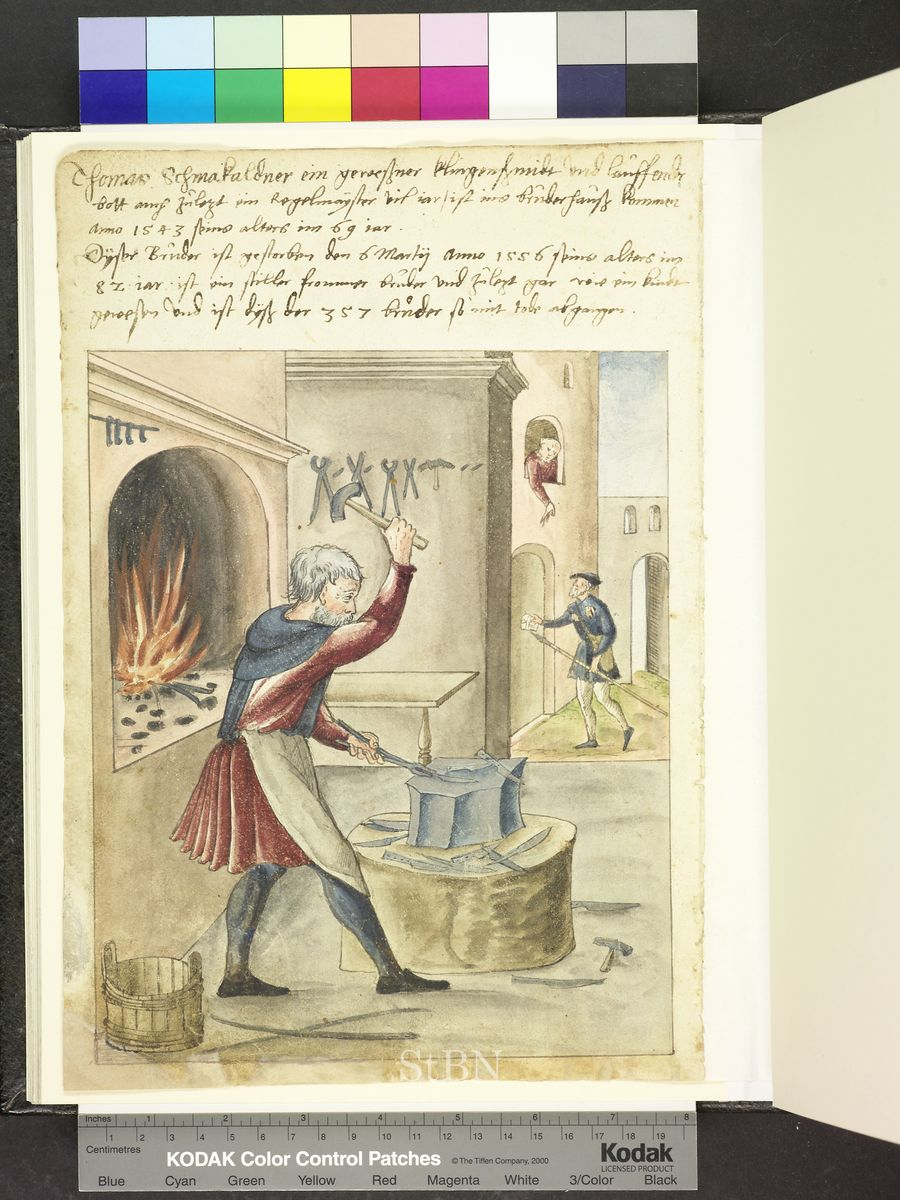 Thomas Schmakaldner ein gewesner klingenschmidt und lauffender
bott auch zulezt ein Kegelmayster vil iar / ist ins brüderhauß kommen
anno 1543 seins alters im 69 iar.
Dyser Bruder ist gestorben den 6 Martij Anno 1556 seins alters im
82 iar ist ein stiller frommer bruder und zulezt gar wie ein kindt
gewesen und ist dyß der 357 bruder so mit tode abgangen.
StBN
Inches 1 2 3 4 5 6 7 8
Centimetres 1 2 3 4 5 6 7 8 9 10 11 12 13 14 15 16 17 18 19
KODAK Color Control Patches © The Tiffen Company, 2000 Kodak
LICENSED PRODUCT
Blue Cyan Green Yellow Red Magenta White 3/Color Black